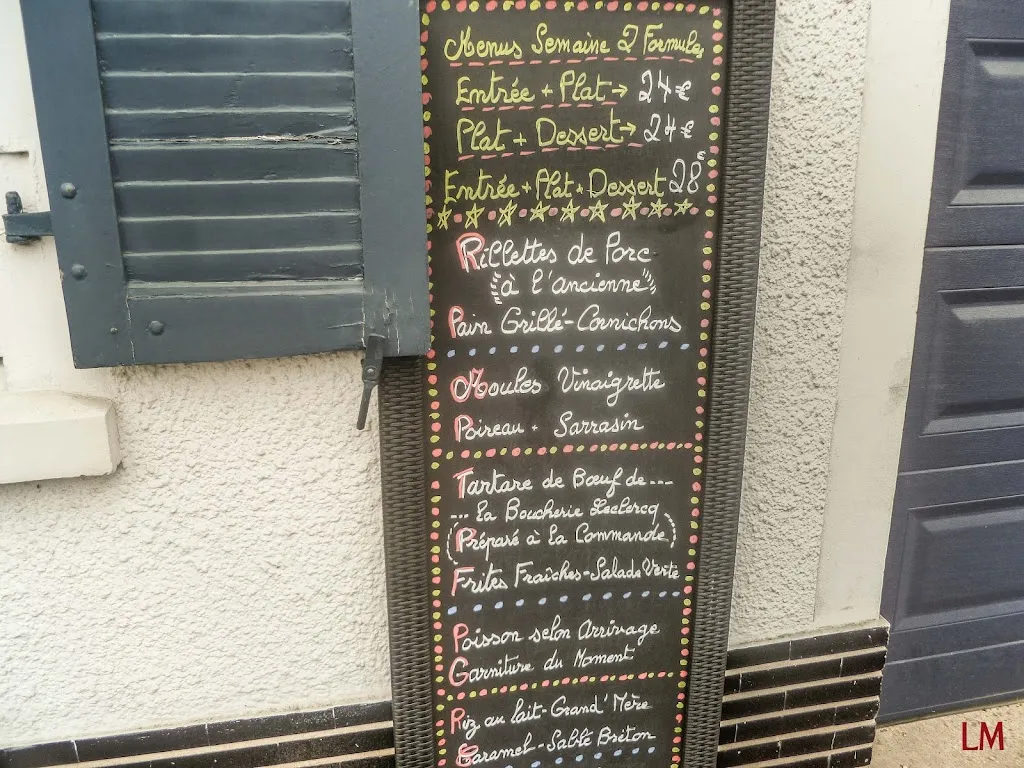 Menus Semaine 2 Formules
Entrée + Plat → 24€
Plat + Dessert → 24€
Entrée + Plat + Dessert 28€
Rillettes de Porc
"à l'ancienne"
Pain Grillé - Cornichons
Moules Vinaigrette
Poireau - Sarrasin
Tartare de Bœuf de ---
--- la Boucherie Leclercq
(Préparé à la Commande)
Frites Fraîches - Salade Verte
Poisson selon Arrivage
Garniture du Moment
Riz au lait - Grand' Mère
Caramel - Sablé Breton
LM